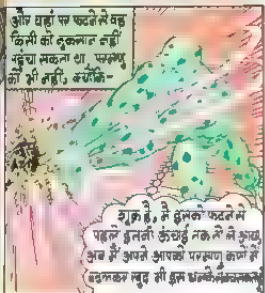 और यहां पर फटने से वह
किसी को नुकसान नहीं
पहुंचा सकता था परमाणु
को भी नहीं। क्योंकि
शुक्र है, मैं इसको फटने से
पहले इतनी ऊंचाई तक ले आया
अब मैं अपने आपको परमाणु कणों में
बदलकर खुद भी इस धमाके